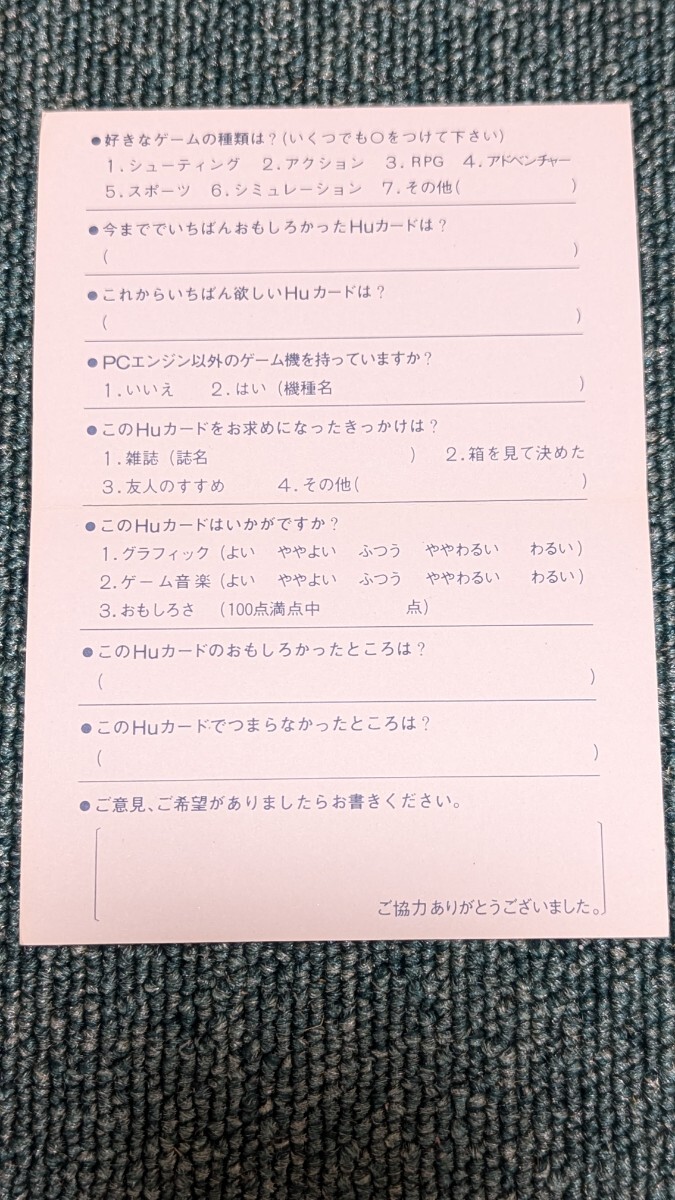 ●好きなゲームの種類は?(いくつでも○をつけて下さい)
1.シューティング 2.アクション 3.RPG 4.アドベンチャー
5.スポーツ 6.シミュレーション 7.その他( )
●今まででいちばんおもしろかったHuカードは?
( )
●これからいちばん欲しいHuカードは?
( )
●PCエンジン以外のゲーム機を持っていますか?
1.いいえ 2.はい (機種名 )
●このHuカードをお求めになったきっかけは?
1.雑誌 (誌名 ) 2.箱を見て決めた
3.友人のすすめ 4.その他( )
●このHuカードはいかがですか?
1.グラフィック (よい ややよい ふつう ややわるい わるい)
2.ゲーム音楽 (よい ややよい ふつう ややわるい わるい)
3.おもしろさ (100点満点中 点)
●このHuカードのおもしろかったところは?
( )
●このHuカードでつまらなかったところは?
( )
●ご意見、ご希望がありましたらお書きください。
ご協力ありがとうございました。